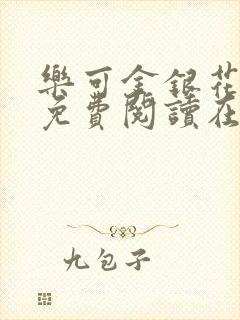 樂可金銀花
免費閱讀在
九包子